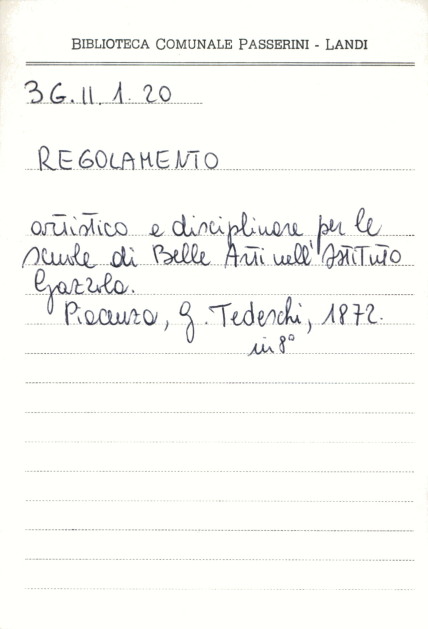 BIBLIOTECA COMUNALE PASSERINI - LANDI
3G.II.1.20
REGOLAMENTO
artistico e disciplinare per le
scuole di Belle Arti nell'Istituto
Gazzola.
Piacenza, G. Tedeschi, 1872.
in 8°